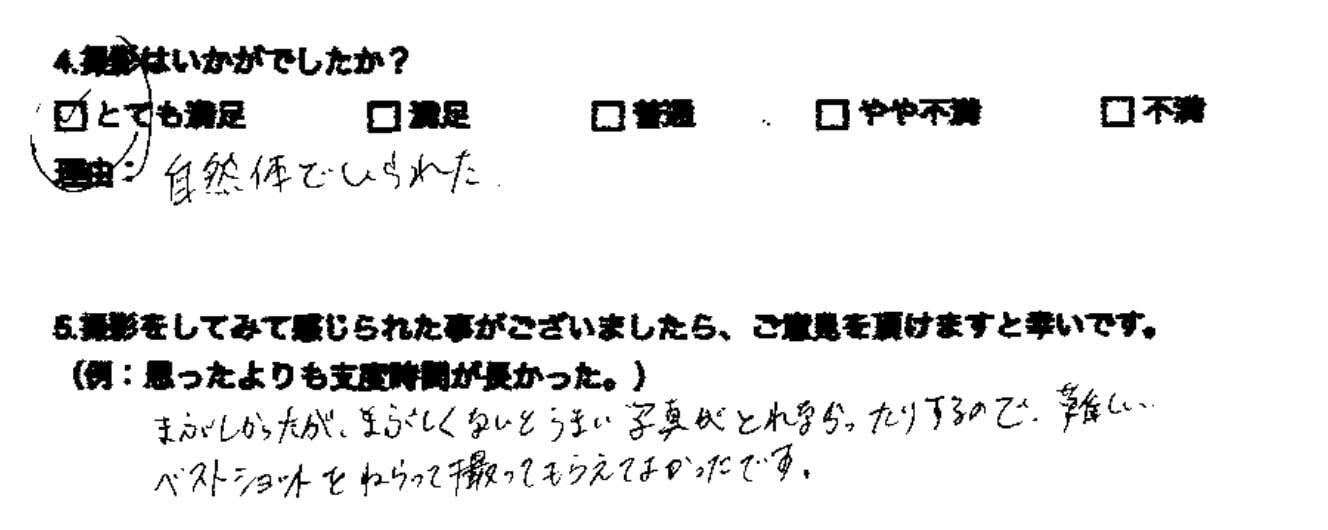 4.撮影はいかがでしたか？
☑とても満足 □満足 □普通 □やや不満 □不満
理由：自然体でいられた
5.撮影をしてみて感じられた事がございましたら、ご意見を頂けますと幸いです。
（例：思ったよりも支度時間が長かった。）
まぶしかったが、まぶしくないとうまい写真がとれなかったりするので、難しい…
ベストショットをねらって撮ってもらえてよかったです。